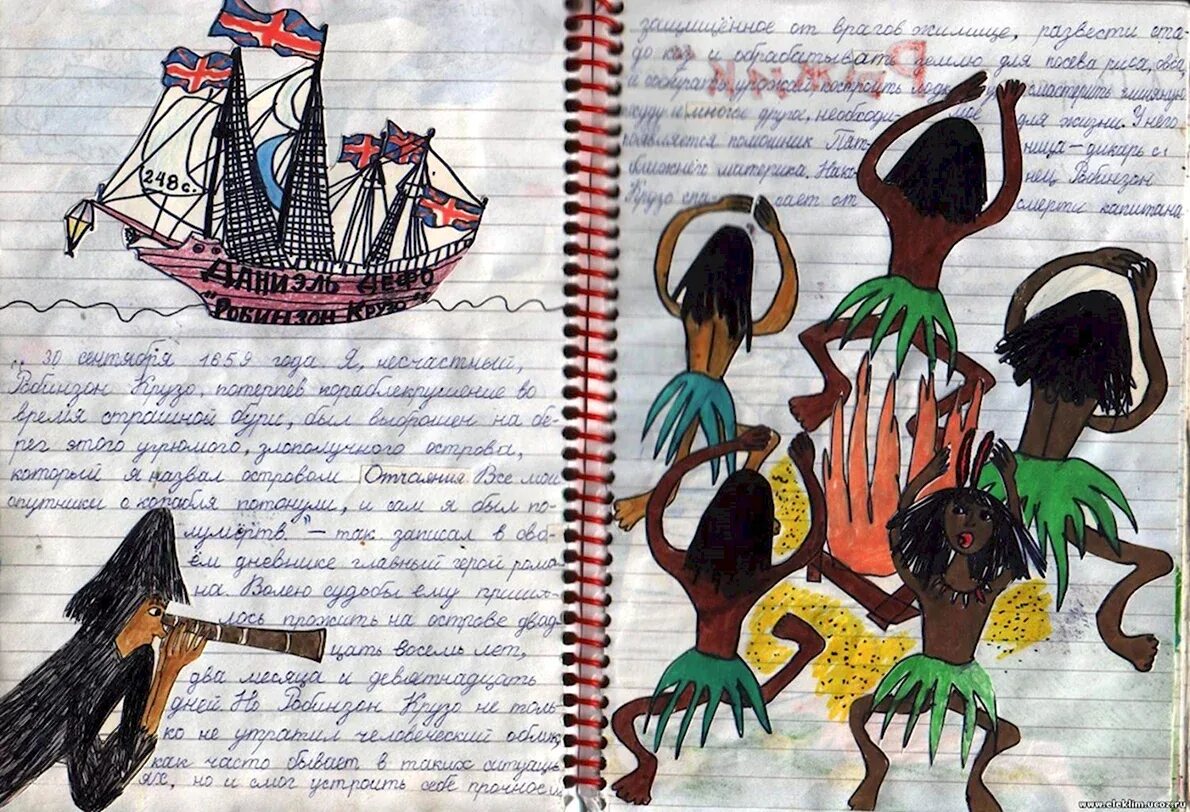 248 с.
Даниэль Дефо
"Робинзон Крузо"
„ 30 сентября 1659 года. Я, несчастный,
Робинзон Крузо, потерпев кораблекрушение во
время страшной бури, был выброшен на бе-
рег этого угрюмого, злополучного острова,
который я назвал островом Отчаяния. Все мои
спутники с корабля потонули, и сам я был по-
лумёртв" – так записал в сво-
ём дневнике главный герой рома-
на. Волею судьбы ему пришл-
лось прожить на острове двад-
цать восемь лет,
два месяца и девятнадцать
дней Но Робинзон Крузо не толь-
ко не утратил человеческий облик,
как часто бывает в таких ситуаци-
ях, но и смог устроить себе прочное,
защищённое от врагов жилище, развести ста-
до коз и обрабатывать землю для посева риса, овса,
и собирать урожай построить лодку смастерить глиняную
посуду и многое другое, необходимое для жизни. У него
появляется помощник Пятница – дикарь с
ближнего материка. Наконец Робинзон
Крузо спасает от смерти капитана
www.cleklim.ucoz.ru